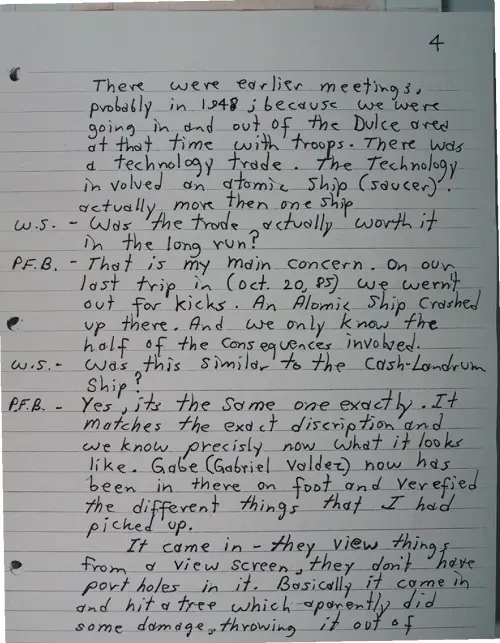 4
There were earlier meetings,
probably in 1948; because we were
going in and out of the Dulce area
at that time with troops. There was
a technology trade. The Technology
involved an atomic ship (saucer).
actually more then one ship
W.S. - Was the trade, actually worth it
in the long run?
P.F.B. - That is my main concern. On our
last trip in (Oct. 20, 85) we wern't
out for kicks. An Atomic Ship Crashed
up there. And we only know the
half of the consequences involved.
W.S. - Was this similar to the Cash-Landrum
Ship?
P.F.B. - Yes, its the same one exactly. It
matches the exact discription and
we know precisly now what it looks
like. Gabe (Gabriel Valdez) now has
been in there on foot and verefied
the different things that I had
picked up.
It came in - they view things
from a view screen, they don't have
port holes in it. Basically it came in
and hit a tree which aparently did
some damage, throwing it out of